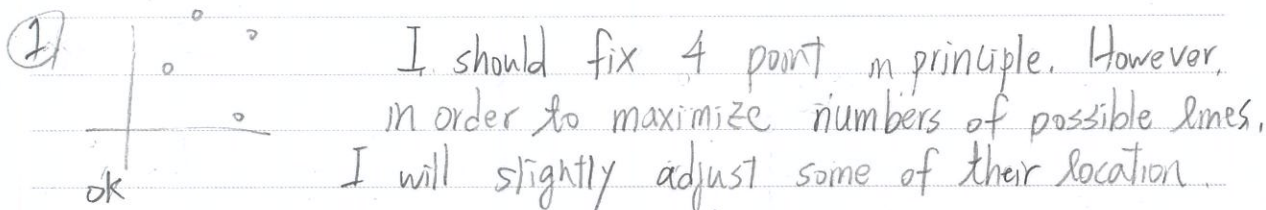 ① I should fix 4 point in principle. However,
in order to maximize numbers of possible lines,
I will slightly adjust some of their location.
ok